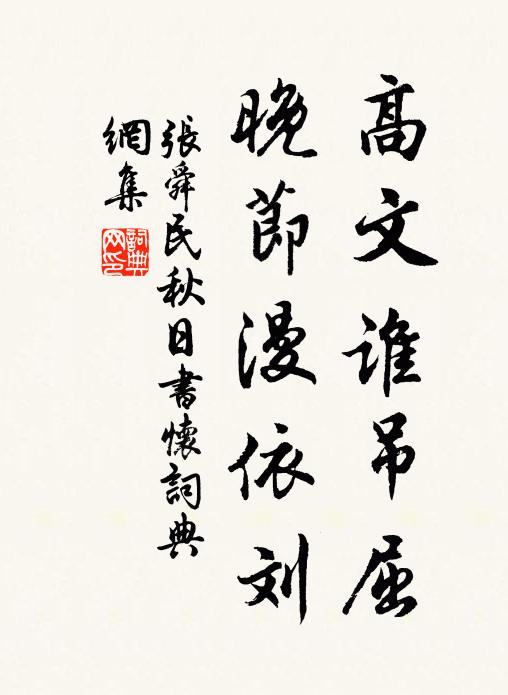 高文谁吊屈
晚節漫依刘
張舜民秋日書懷詞典
網集
詞典网印